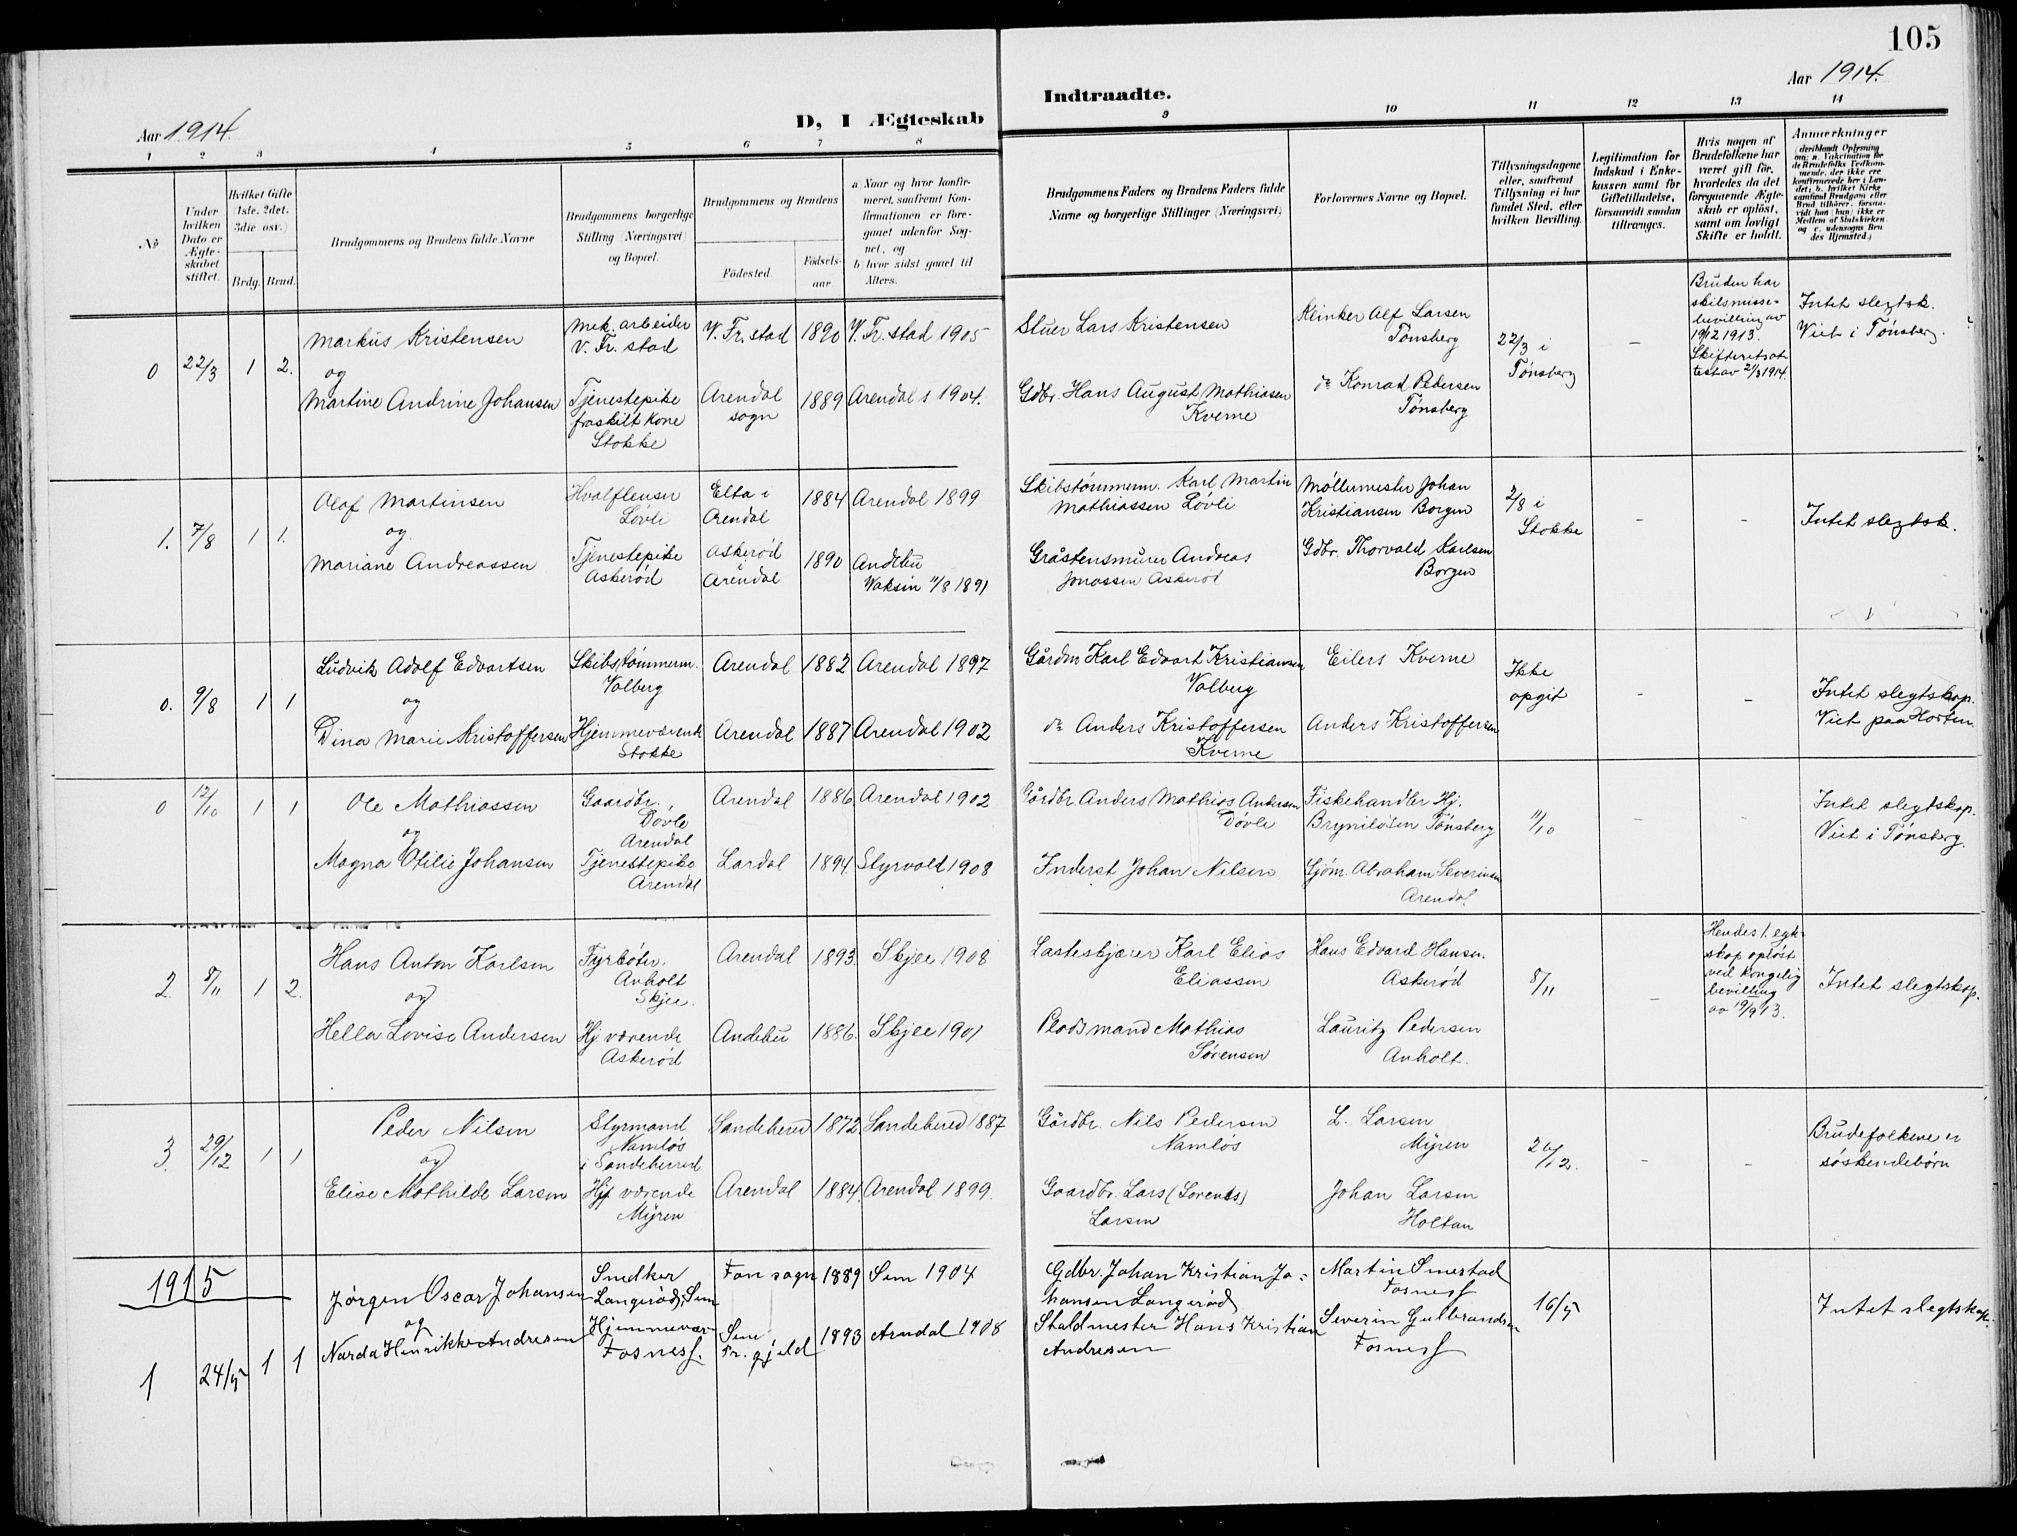 105
Aar 1914.
D, I Ægteskab
Indtraadte.
Aar 1914.
1 2 3 4 5 6 7 8 9 10 11 12 13 14
No
Under hvilken Dato er Ægteskabet stiftet.
Hvilket Gifte (1ste, 2det, 3die osv.)
Brdg. Brud.
Brudgommens og Brudens fulde Navne
Brudgommens borgerlige Stilling (Næringsvei) og Bopæl.
Brudgommens og Brudens
Födested.
Födselsaar
a) Naar og hvor konfirmeret, saafremt Konfirmationen er foregaaet udenfor Sognet, og
b) hvor sidst gaaet til Alters.
Brudgommens Faders og Brudens Faders fulde Navne og borgerlige Stillinger (Næringsvei)
Forlovernes Navne og Bopæl.
Tillysningsdagene eller, saafremt Tillysning ei har fundet Sted, efter hvilken Bevilling.
Legitimation for Indskud i Enkekassen samt for Giftetilladelse, forsaavidt saadan tiltrænges.
Hvis nogen af Brudefolkene har været gift før, hvorledes da det foregaaende Ægteskab er opløst, samt om lovligt Skifte er holdt.
Anmærkninger
(deriblandt Oplysning om: a. Vakcination for de Brudefolks Vedkommende, der ikke ere konfirmerede her i Landet; b. hvilket Kirkesamfund Brudgom eller Brud tilhører, forsaavidt han (hun) ikke er Medlem af Statskirken, og c. udensogns Brudes Hjemsted.)
0 22/3 1 2.
Markus Kristensen
og
Martine Andrine Johansen
Mek. arbeider
V. Fr. stad
Tjenestepike
fraskilt kone
Stokke
V. Fr. stad 1890 V. Fr. stad 1905
Arendal
sogn
1889 Arendal s 1904.
Stuer Lars Kristensen
Gdbr. Hans August Mathiasen
Kverne
Klinker Alf Larsen
Tønsberg
do Konrad Pedersen
Tønsberg
22/3 i
Tønsberg
-
Bruden har
skilsmisse-
bevilling av
19/12 1913.
Skifteretsat-
test av 21/3 1914.
Intet slegtsk.
Viet i Tønsberg.
1. 7/8 1 1.
Olaf Martinsen
og
Mariane Andreassen
Hvalflenser
Løvli
Tjenestepike
Askerød
Elta i
Arendal
Askerød
Arendal
1884 Arendal 1899
1890 Andebu
Vaksin 11/8 1891
Skibstømmerm. Karl Martin
Mathiassen Løvli
Gråstensmurer Andreas
Jonassen Askerød
Møllemester Johan
Kristiansen Borgen
Gdbr. Thorvald Karlsen
Borgen
2/8 i
Stokke
- -
Intet slegtsk.
0. 9/8 1 1
Ludvik Adolf Edvartsen
og
Dina Marie Kristoffersen
Skibstømmerm.
Valberg
Hjemmeværende
Stokke
Arendal 1882 Arendal 1897
Arendal 1887 Arendal 1902
Gårdbr Karl Edvart Kristiansen
Valberg
do Anders Kristoffersen
Kverne
Eilers Kverne
Anders Kristoffersen
Ikke
opgit
- -
Intet slegtskap.
Viet paa Horten.
0 12/10 1 1
Ole Mathiassen
og
Magna Otilie Johansen
Gaardbr.
Døvle
Arendal
Tjenestepike
Arendal
Arendal 1886 Arendal 1902
Lardal 1894 Styrvold 1908
Gårdbr Anders Mathias Andersen
Døvle
Inderst Johan Nilsen
Fiskehandler Hj.
Tønsberg
Sjøm. Abraham Severinsen
Arendal
11/10
- -
Intet slegtskap.
Viet i Tønsberg.
2. 8/11 1 2.
Hans Anton Karlsen
og
Hella Lovise Andersen
Fyrbøter.
Anholt
Skjee.
Hj. værende
Askerød
Arendal 1893. Skjee 1908
Andebu 1886. Skjee 1901
Lasteskjærer Karl Elias
Eliassen
Plodsmand Mathias
Sørensen
Hans Edvard Hansen.
Askerød
Lauritz Pedersen
Anholt.
8/11
-
Hendes 1. egt-
skap opløst
ved kongelig
bevilling
av 19/9 13.
Intet slegtskap.
3. 29/12 1 1
Peder Nilsen
og
Elise Mathilde Larsen
Styrmand
Namløs
i Sandeherred
Hj. værende
Myren
Sandeherred 1872. Sandeherred 1887
Arendal 1884. Arendal 1899.
Gårdbr. Nils Pedersen
Namløs
Gaardbr. Lars (Lorents)
Larsen
L. Larsen
Myren
Johan Larsen
Holtan
26/12.
- -
Brudefolkene er
søskendebørn
1915
1 24/5 1 1
Jørgen Oscar Johansen
og
Narda Henrikke Andresen
Snedker
Langerød, Sem
Hjemmevær.
Fosness.
Fon sogn 1889 Sem 1904
Sem
Pr. gjeld
1893 Arndal 1908
Gdbr. Johan Kristian Jo-
hansen Langerød
Staldmester Hans Kristian
Andresen
Martin Smestad
Fosness
Severin Gulbrandsen
Fosness
16/5
Intet slegtskap.